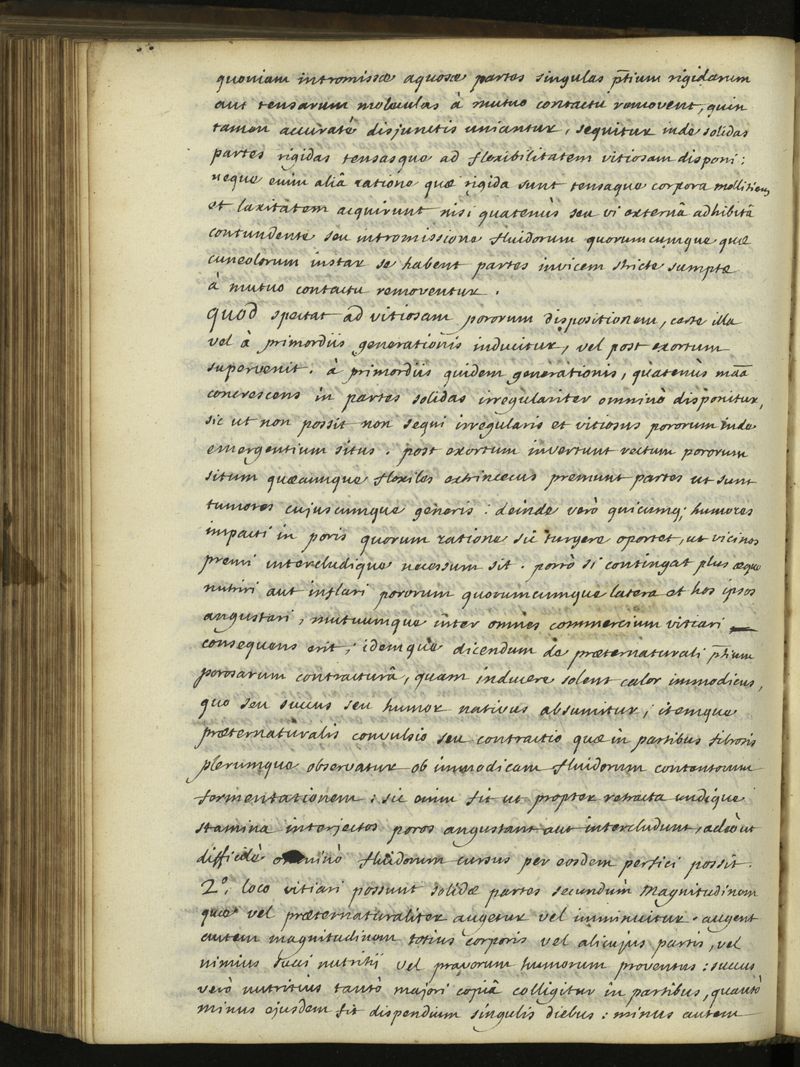 quoniam intromissæ aquosæ partes singulas p̄tium rigidarum
aut tensarum moleculas à mutuo contactu removent, quin
tamen accuratè disjunctis uniantur, sequitur inde solidas
partes rigidas tensasque ad flexibilitatem vitiosam disponi:
neque enim aliâ ratione quæ rigida sunt tensaque corpora mollitiem
et laxitatem acquirunt nisi quatenùs seu vi externâ adhibitâ
contundente seu intromissione fluidorum quorumcumque quæ
cuneolorum instar se habent partes invicem stricte sumptæ
à mutuo contactu removentur.
quod spectat ad vitiosam pororum dispositionem, certe illa
vel à primordiis generationis inducitur, vel post exortum
supervenit. à primordiis quidem generationis, quàtenùs māā
concrescens in partes solidas irregulariter omninò disponitur,
sic ut non possit non sequi irregularis et vitiosus pororum inde
emergentium situs. post exortum invertunt rectum pororum
situm quæcumque flexiles extrinsecus premunt partes ut sunt
tumores cujuscumque generis. deinde verò quicumq; humores
impacti in poris quorum ratione sic turgere oportet, ut vicinos
premi intercludique necessum sit. porrò si contingat plus æquo
nutriri aut inflari pororum quorumcumque latera et hos ipsos
angustari, mutuumque inter omnes commercium vitiari
consequens erit; idemque dicendum de præternaturali p̄tium
porosarum contracturâ, quam inducere solent calor immodicus,
quo seu succus seu humor nativus absumitur; itemque
præternaturalis convulsio seu contractio quæ in partibus fibrosis
plerumque observatur ob immodicam fluidorum contentorum
fermentationem: sic enim fit ut propter retracta undique
stamina interjectos poros angustant aut intercludunt, adeò ut
difficilè omninò fluidorum cursus per eosdem perfici possit.
2º. loco vitiari possunt solidæ partes secundùm magnitudinem
quæ vel præternaturaliter augetur vel imminuitur. augent
autem magnitudinem totius corporis vel alicujus partis, vel
nimius succi nutritii vel pravorum humorum proventus: succus
verò nutritius tantò majori copiâ colligitur in partibus, quantò
minus ejusdem fit dispendium singulis diebus: minus autem